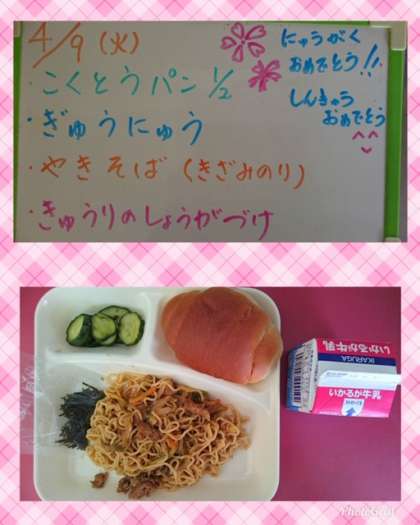 4/9(火)
・こくとうパン 1/2
・ぎゅうにゅう
・やきそば(きざみのり)
・きゅうりのしょうがづけ
にゅうがく
おめでとう!!
しんきゅう
おめでとう
IKARUGA
いかるが牛乳
いかるが牛乳
PhotoGrid